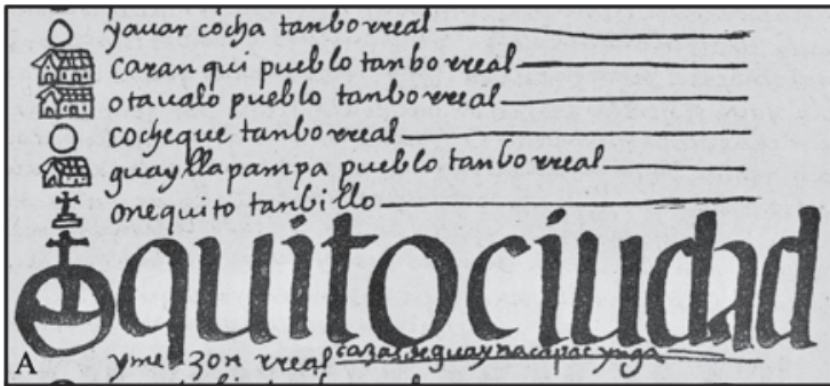 yauar cocha tanbo rreal
caran qui pueblo tanbo rreal
otaualo pueblo tanbo rreal
cocheque tanbo rreal
guayllapampa pueblo tanbo rreal
onequito tanbillo
quito ciudad
A
y mezon rreal cazas de guaynacapac ynga